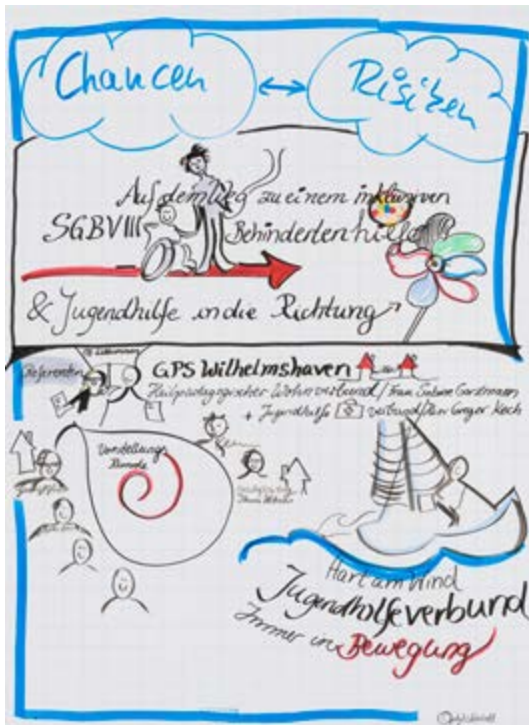 Chancen ↔ Risiken
Auf dem Weg zu einem inklusiven
SGB VIII Behindertenhilfe
& Jugendhilfe in die Richtung
Referenten
GPS Wilhelmshaven
Heilpädagogischer Wohnverbund / Frau
+ Jugendhilfe verbund / Herr Gregor Koch
Vorstellungs
Runde
Hart am Wind
Jugendhilfeverbund
Immer in Bewegung